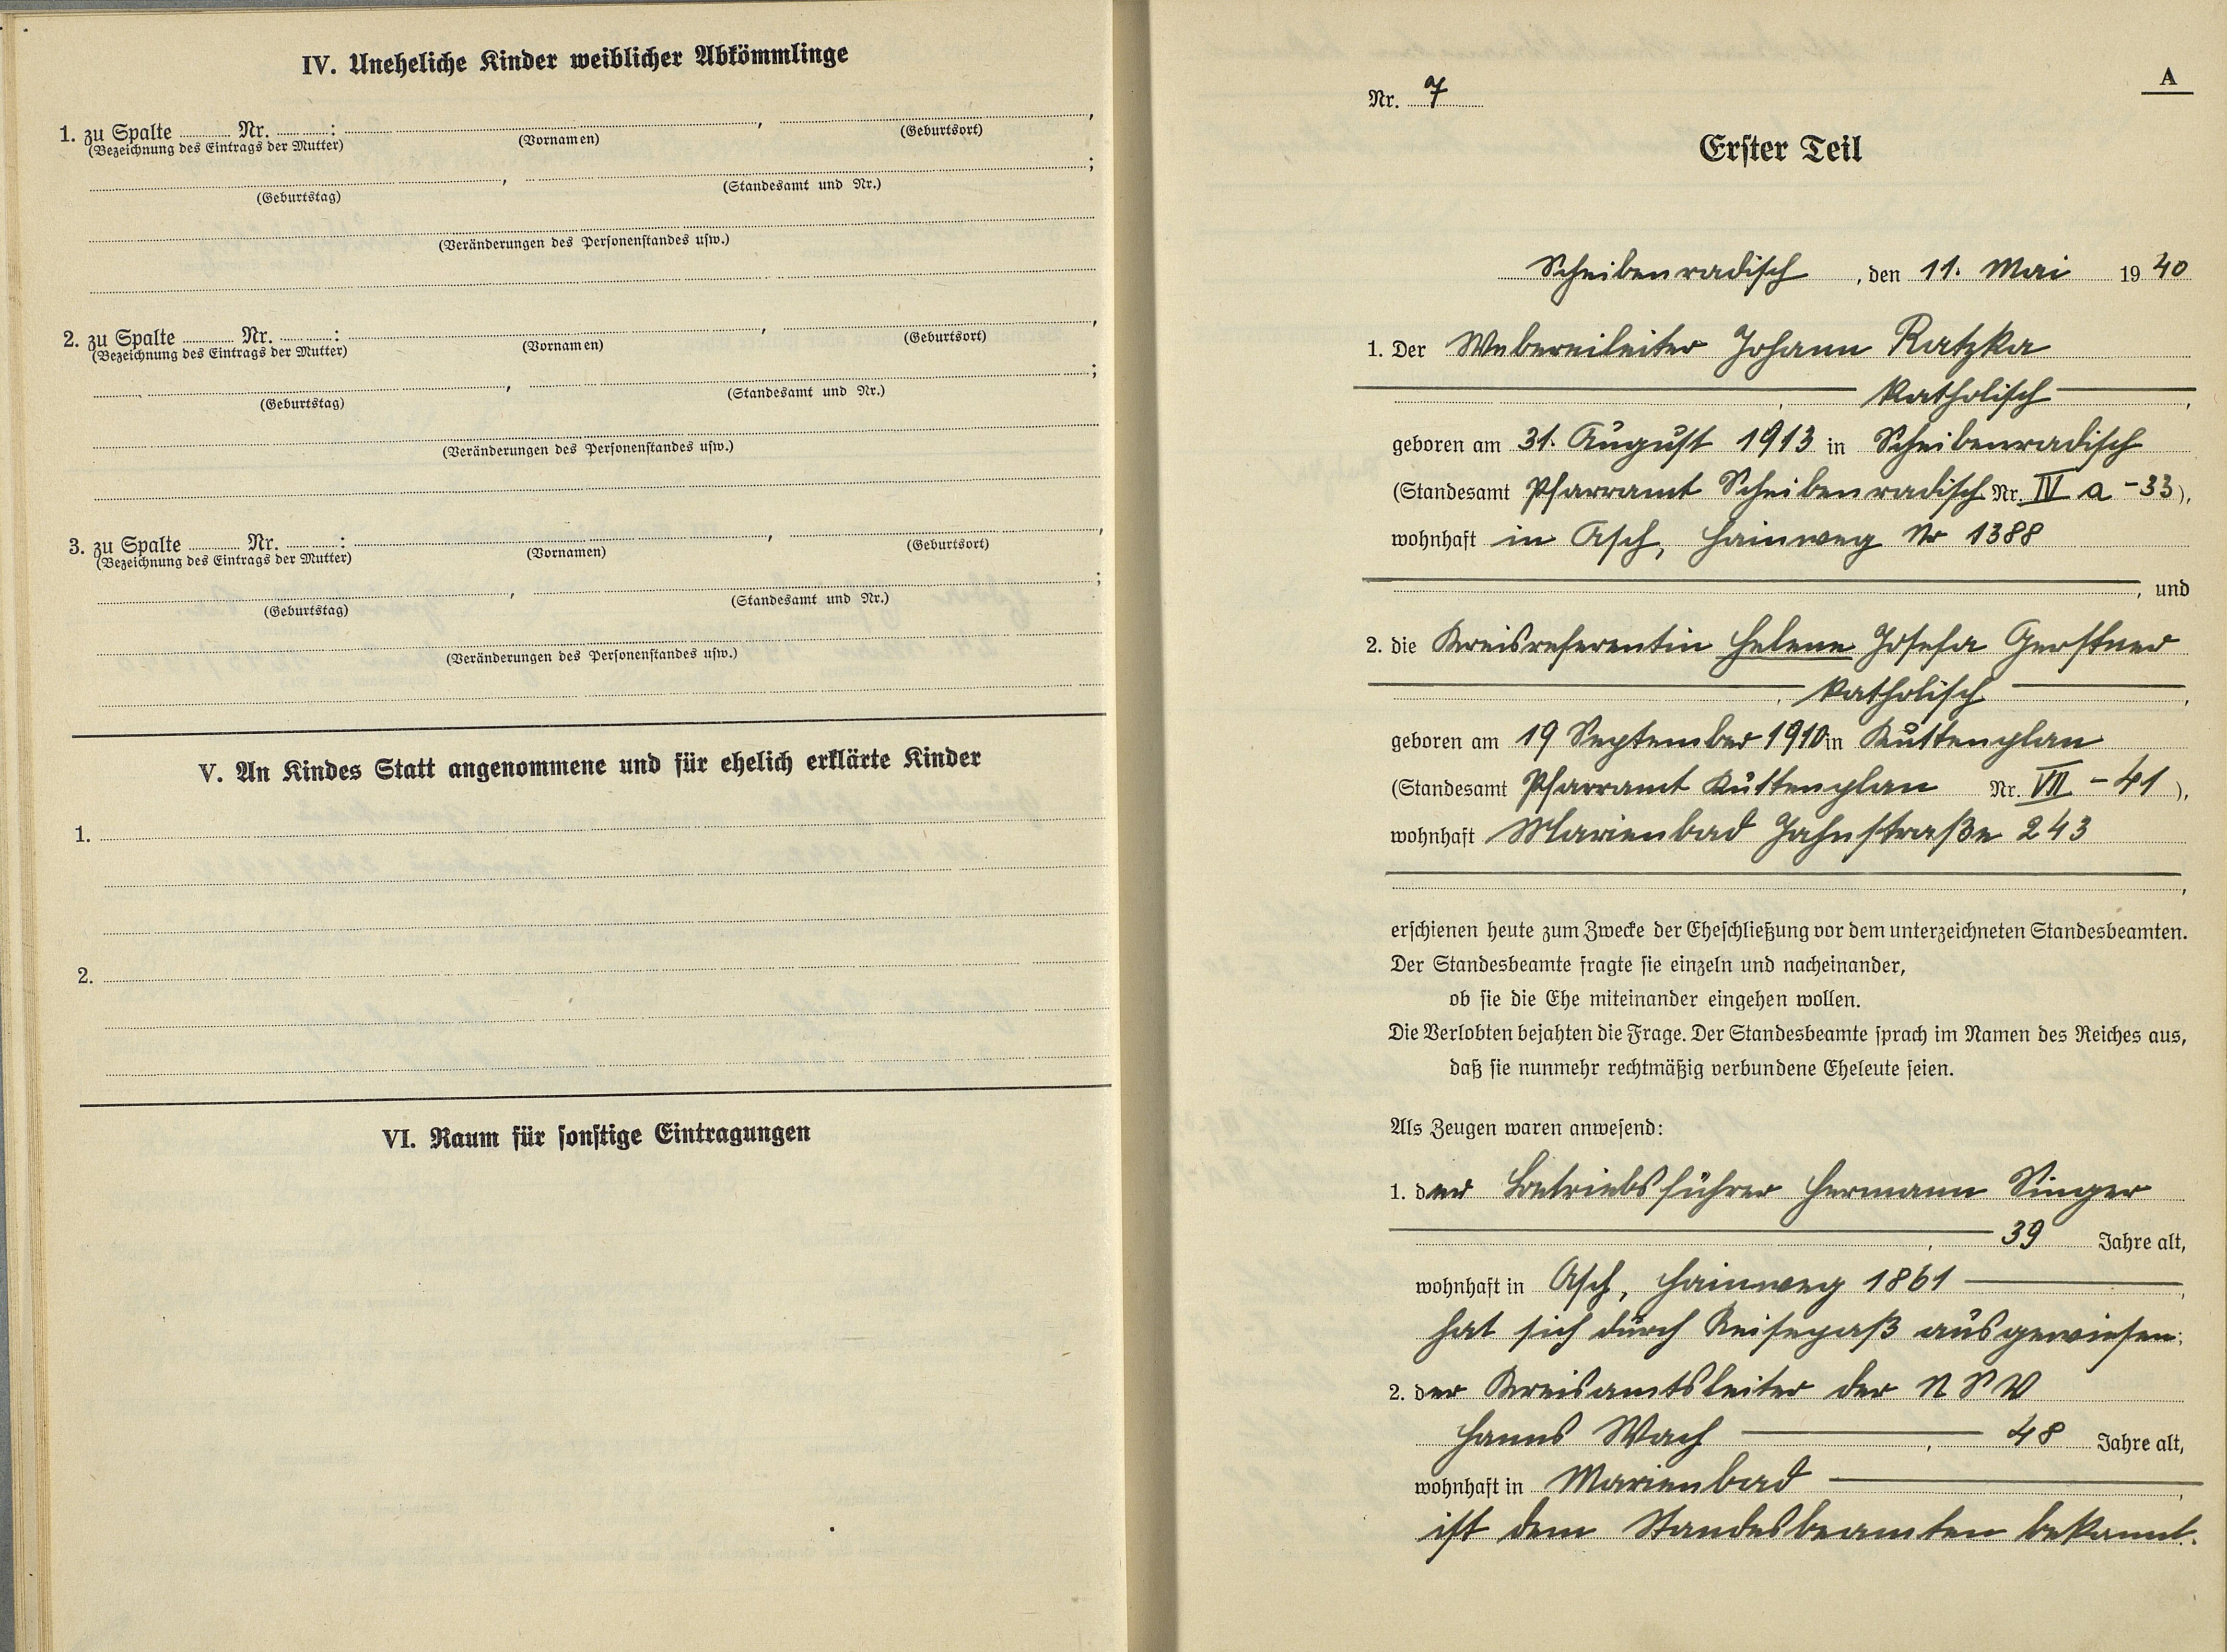 IV. Uneheliche Kinder weiblicher Abkömmlinge
1. zu Spalte Nr. : , ,
(Bezeichnung des Eintrags der Mutter) (Vornamen) (Geburtsort)
, ;
(Geburtstag) (Standesamt und Nr.)
(Veränderungen des Personenstandes usw.)
2. zu Spalte Nr. : , ,
(Bezeichnung des Eintrags der Mutter) (Vornamen) (Geburtsort)
, ;
(Geburtstag) (Standesamt und Nr.)
(Veränderungen des Personenstandes usw.)
3. zu Spalte Nr. : , ,
(Bezeichnung des Eintrags der Mutter) (Vornamen) (Geburtsort)
, ;
(Geburtstag) (Standesamt und Nr.)
(Veränderungen des Personenstandes usw.)
V. An Kindes Statt angenommene und für ehelich erklärte Kinder
1.
2.
VI. Raum für sonstige Eintragungen
A
Nr. 7
Erster Teil
Scheibenradisch, den 11. Mai 1940
1. Der Webereileiter Johann Ratzka
, katholisch,
geboren am 31. August 1913 in Scheibenradisch
(Standesamt Pfarramt Scheibenradisch Nr. IV a - 33),
wohnhaft in Asch, Hainweg Nr 1388
, und
2. die Kreisreferentin Helene Josefa Gerstner
, katholisch,
geboren am 19 September 1910 in Kuttenplan
(Standesamt Pfarramt Kuttenplan Nr. VII - 41),
wohnhaft Marienbad Jahnstraße 243
,
erschienen heute zum Zwecke der Eheschließung vor dem unterzeichneten Standesbeamten.
Der Standesbeamte fragte sie einzeln und nacheinander,
ob sie die Ehe miteinander eingehen wollen.
Die Verlobten bejahten die Frage. Der Standesbeamte sprach im Namen des Reiches aus,
daß sie nunmehr rechtmäßig verbundene Eheleute seien.
Als Zeugen waren anwesend:
1. der Betriebsführer Hermann Singer
, 39 Jahre alt,
wohnhaft in Asch, Hainweg 1861,
hat sich durch Reisepaß ausgewiesen;
2. der Kreisamtsleiter der N S V
Hanns Wach, 48 Jahre alt,
wohnhaft in Marienbad,
ist dem Standesbeamten bekannt.